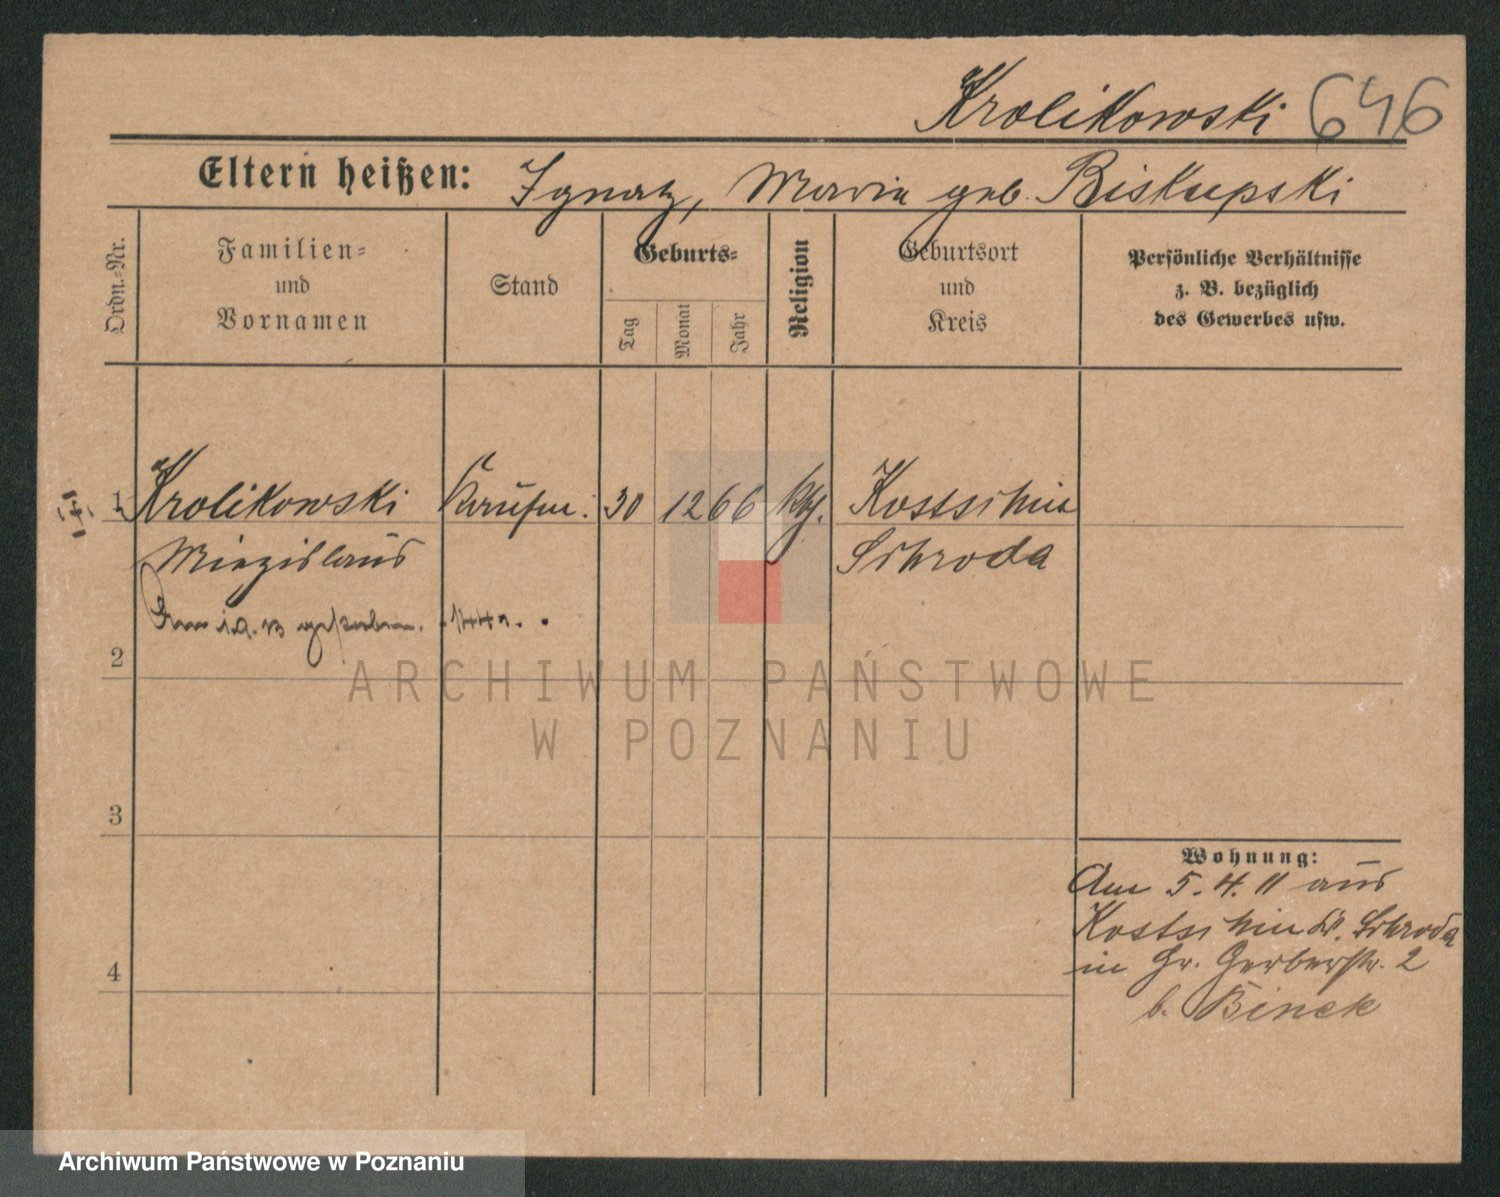 Krolikowski 646
Eltern heißen: Ignatz, Maria geb. Biskupski
Ordn.-Nr.
Familien-
und
Vornamen
Stand
Geburts-
Tag
Monat
Jahr
Religion
Geburtsort
und
Kreis
Persönliche Verhältnisse
z. B. bezüglich
des Gewerbes usw.
1 Krolikowski Kaufm. 30 12 66 kth. Kostschin
Miezislaus Schroda
gestorben.
2
ARCHIWUM PAŃSTWOWE
W POZNANIU
3
4
Wohnung:
Am 5. 4. 11 aus
Kostschin Kr. Schroda
in Gr. Gerberstr. 2
b. Binek
Archiwum Państwowe w Poznaniu